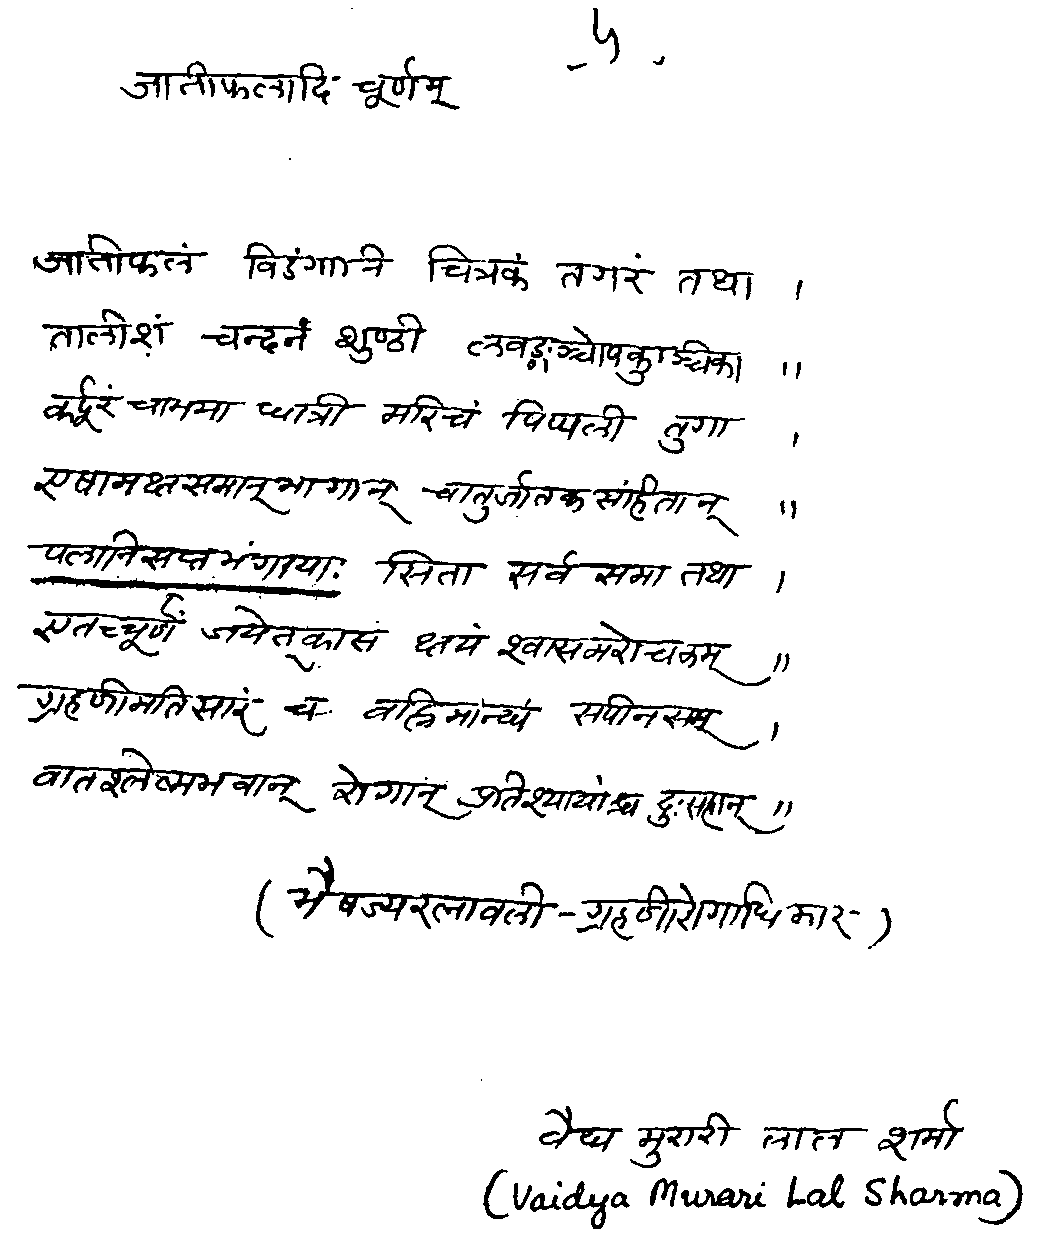 - ५ -
जातीफलादि चूर्णम्
जातीफलं विडंगानि चित्रकं तगरं तथा ।
तालीशं चन्दनं शुण्ठी लवङ्गञ्चोपकुञ्चिका ॥
कर्पूरं चाभया धात्री मरिचं पिप्पली तुगा ।
एषामक्षसमान् भागान् चातुर्जातक संहितान् ॥
पलानि सप्त भंगायाः सिता सर्व समा तथा ।
एतच्चूर्णं जयेत्कासं क्षयं श्वासमरोचकम् ॥
ग्रहणीमतिसारं च वह्निमान्द्यं सपीनसम् ।
वातश्लेष्मभवान् रोगान् प्रतिश्यायांश्च दुःसहान् ॥
( भैषज्यरत्नावली - ग्रहणीरोगाधिकार )
वैद्य मुरारी लाल शर्मा
(Vaidya Murari Lal Sharma)